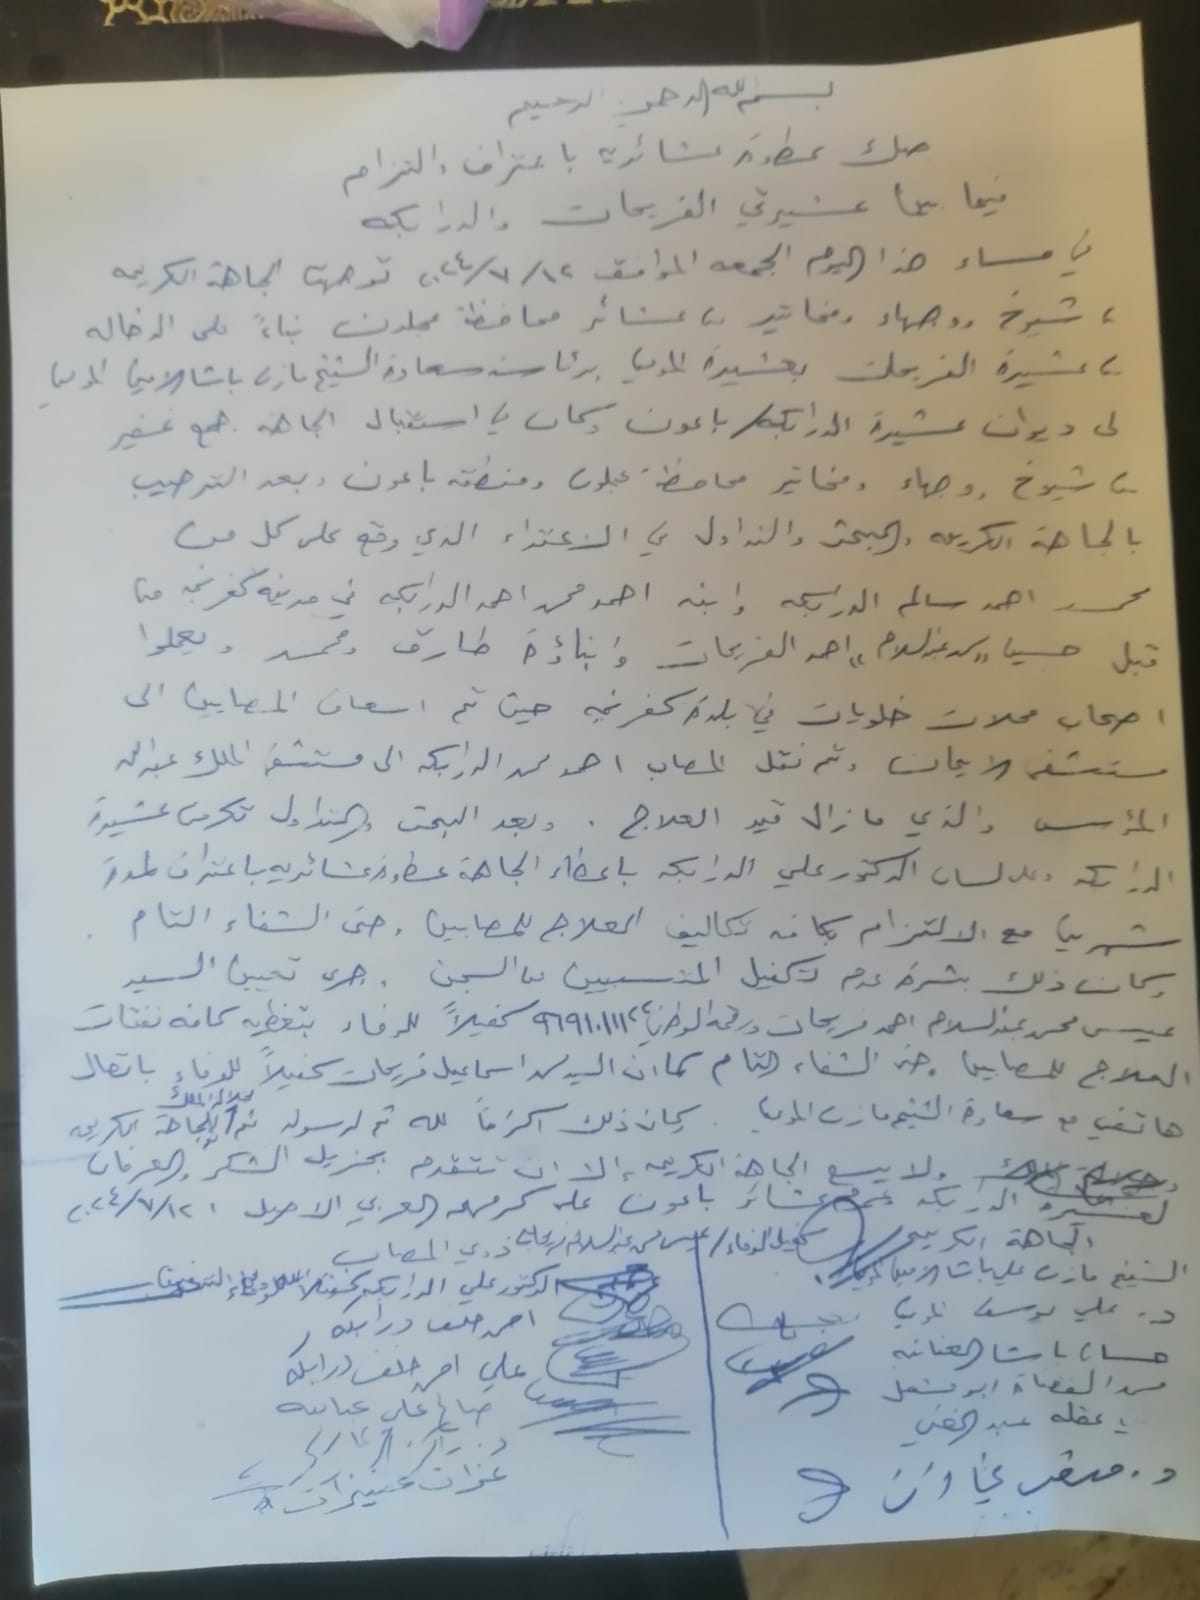 بسم الله الرحمن الرحيم
صك عطوة عشائرية باعتراف والتزام
فيما بين عشيرتي الفريحات والدرابكه
في مساء هذا اليوم الجمعه الموافق ٢٠٢٤/٧/١٢ توجهت الجاهة الكريمه
من شيوخ ووجهاء ومخاتير من عشائر محافظة عجلون بناءً على الدخاله
من عشيرة الفريحات بعشيرة المومني برئاسة سعادة الشيخ مازن باشا الامين المومني
الى ديوان عشيرة الدرابكه/باعون وكان في استقبال الجاهه جمع غفير
من شيوخ ووجهاء ومخاتير محافظة عجلون ومنطقة باعون وبعد الترحيب
بالجاهة الكريمه والبحث والتداول في الاعتداء الذي وقع على كل من
محمد احمد سالم الدرابكه وابنه احمد محمد احمد الدرابكه في مدينة كفرنجه من
قبل حسين "محمد عبدالسلام" احمد الفريحات وأبناؤه طارق ومحمد ويعملوا
اصحاب محلات خلويات في بلدة كفرنجه حيث تم اسعاف المصابين الى
مستشفى الايمان وتم نقل المصاب احمد محمد الدرابكه الى مستشفى الملك عبدالله
المؤسس والذي مازال قيد العلاج . وبعد البحث والتداول تكرمت عشيرة
الدرابكه وعلى لسان الدكتور علي الدرابكه باعطاء الجاهة عطوة عشائريه باعتراف لمدة
شهرين مع الالتزام بكافة تكاليف العلاج للمصابين وحتى الشفاء التام .
وكان ذلك بشرط عدم تكفيل المتسببين من السجن . وجرى تعيين السيد
عيسى محمد عبدالسلام احمد فريحات ورقمه الوطني كفيلاً للوفاء بتغطيه كافه نفقات
العلاج للمصابين وحتى الشفاء التام كما ان السيد محمد اسماعيل فريحات كفيلاً للوفاء باتصال
هاتفي مع سعادة الشيخ مازن المومني . وكان ذلك اكراماً لله ثم لرسوله ثم لجلالة الملك والجاهة الكريمه
ولا يسع الجاهة الكريمه الا ان تتقدم بجزيل الشكر والعرفان
لعشيرة الدرابكه وعموم عشائر باعون على كرمهم العربي الاصيل ٢٠٢٤/٧/١٢
الجاهة الكريمه
كفيل الوفاء/عيسى محمد عبدالسلام فريحات
ذوي المصاب
الشيخ مازن باشا الامين المومني
الدكتور علي الدرابكه
د. علي يوسف المومني
احمد خلف درابكه
حسان باشا العنانبه
علي احمد خلف درابكه
محمد القضاة ابو مشعل
صالح علي عنانبه